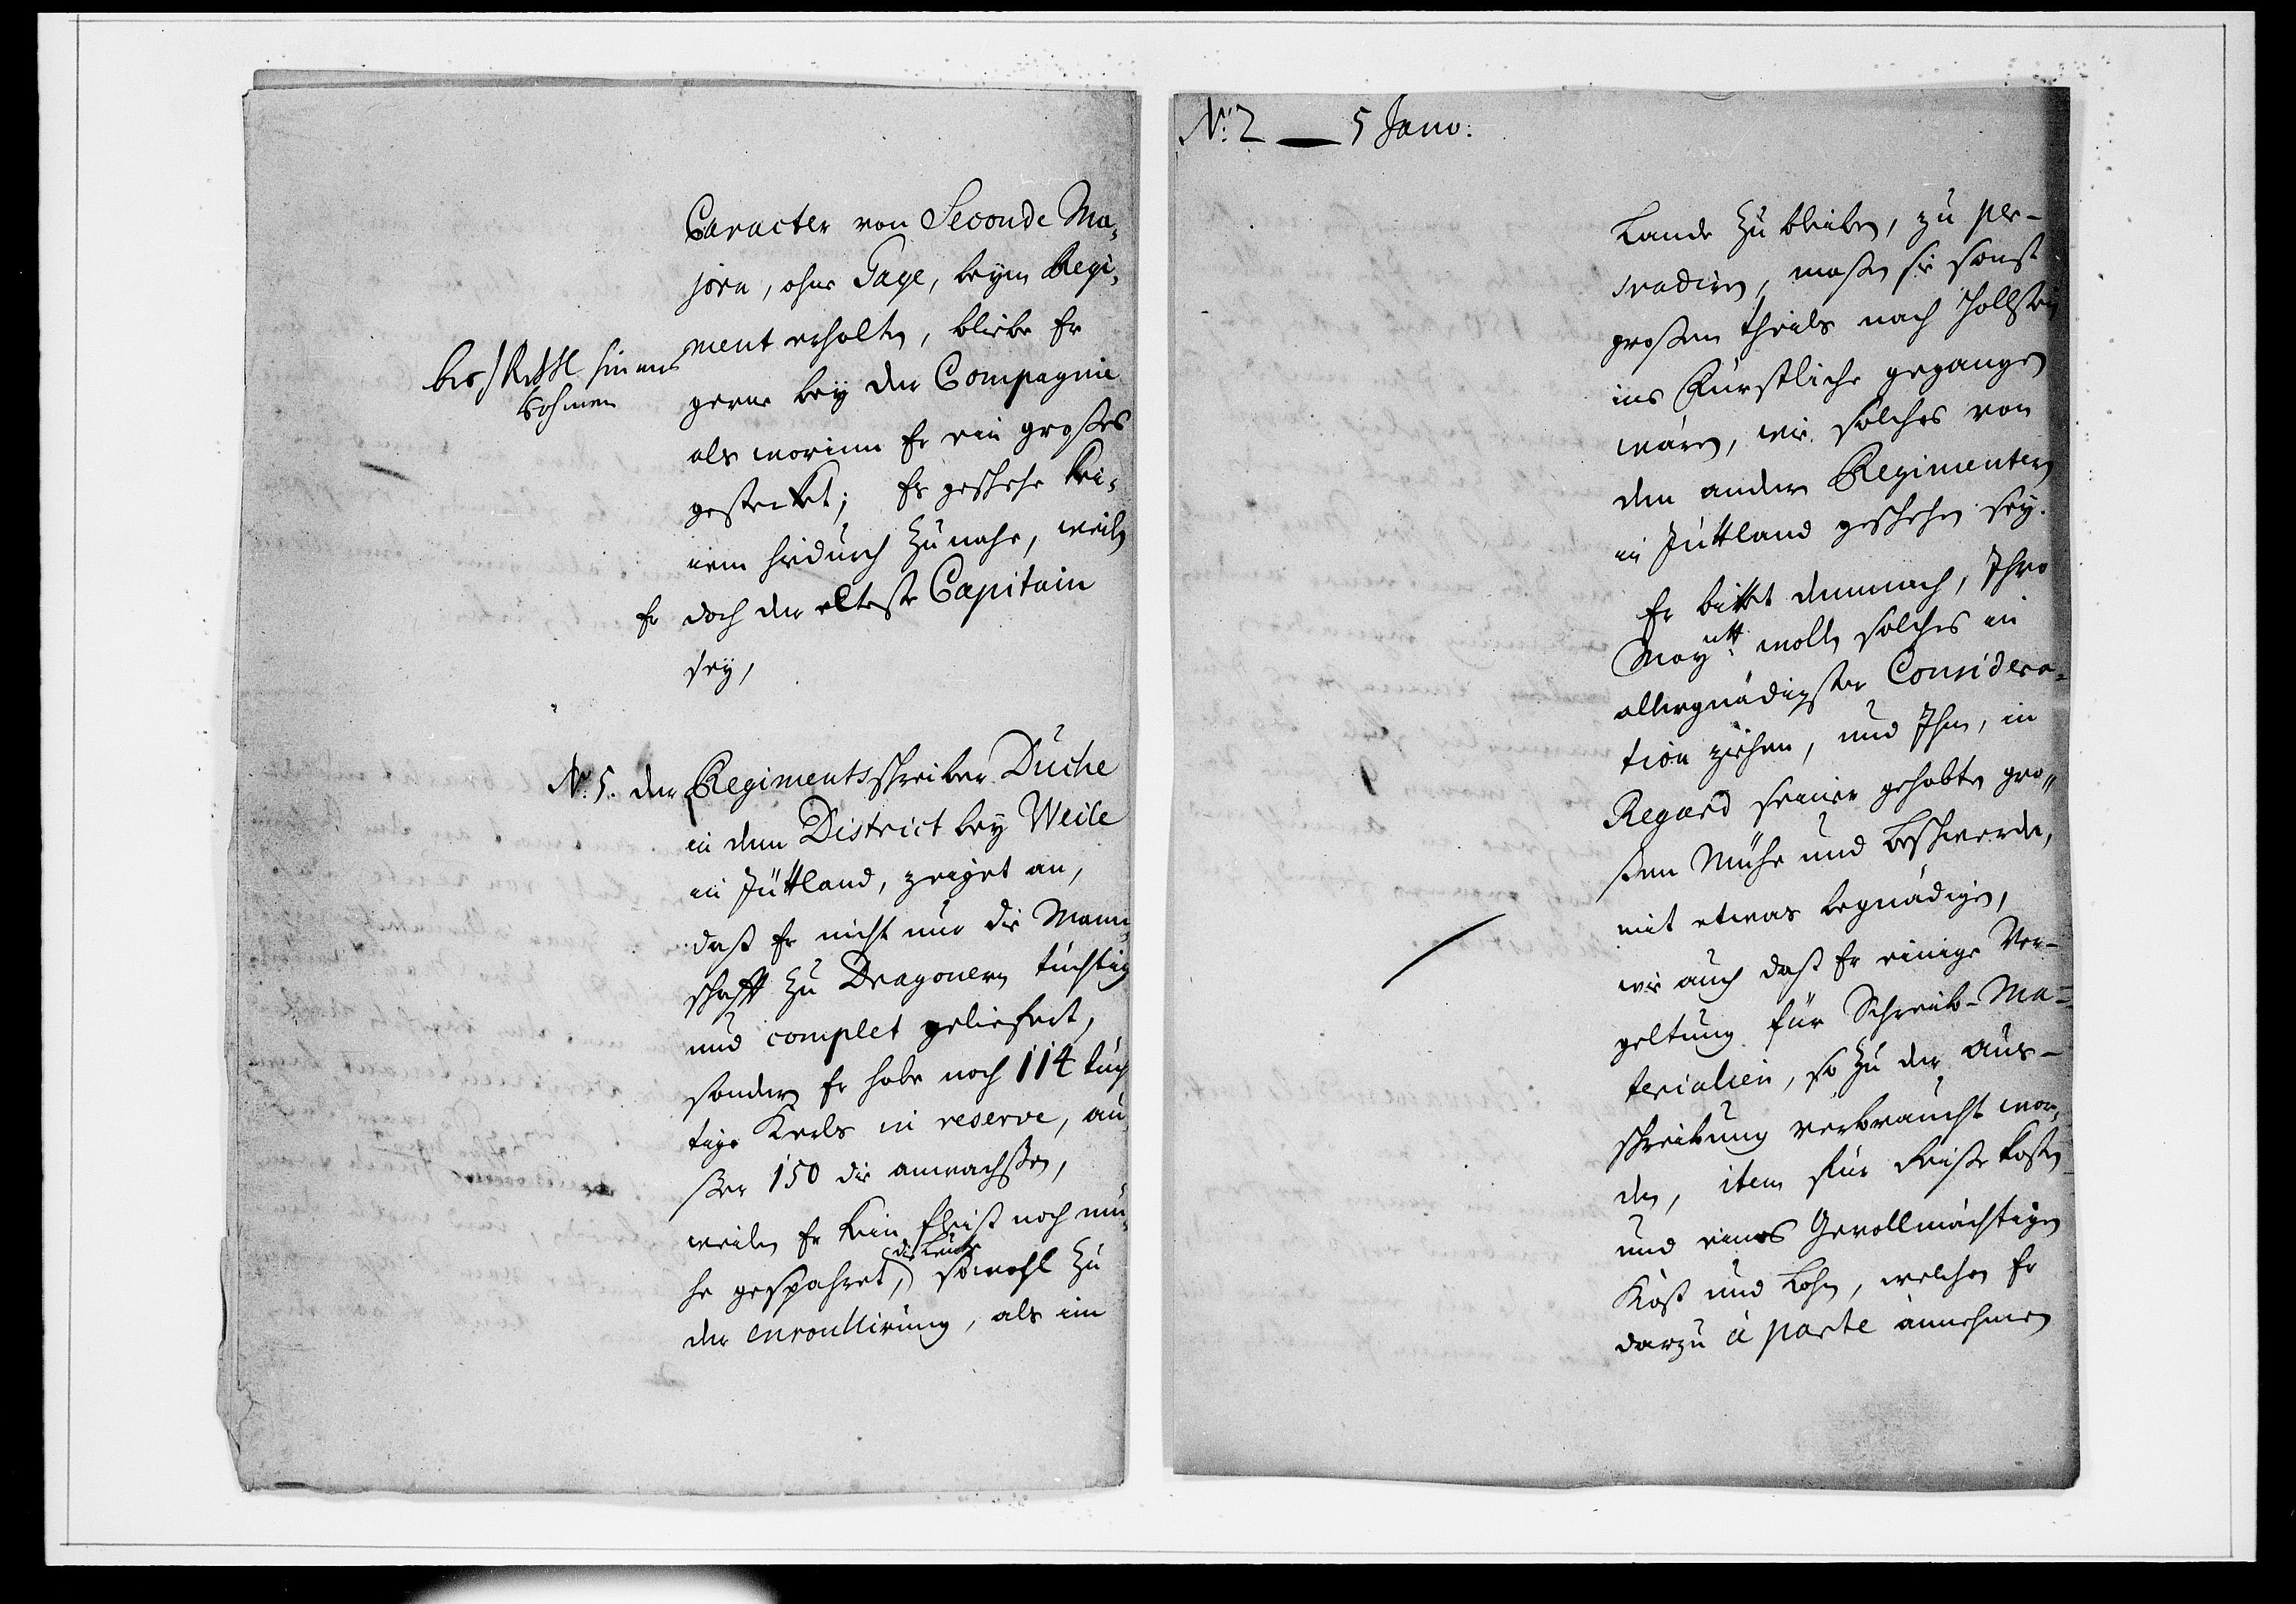 Caracter von Seconde Ma,
jorn, ohne Gage, beym Regi,
ment erhalten, bliebe Er
gerne bey der Compagnie
als worinn Er ein großes
gestecket; Es geschehe kei,
nem hiedurch zu nahe, weiln
Er doch der elteste Capitain
sey,
N: 5. der Regimentsschreiber Duche
in dem District bey Weile
in Jüttland, zeiget an,
daß Er nicht nur die Mann,
schafft zu Dragonern tüchtig
und complet geliefert,
sondern Er habe noch 114 tüch
tige Kerls in reserve, au
ßer 150 die anwachßen,
weiln Er kein Fleiß noch mü,
he gespahret, die Leute sowohl zu
der enroullirung, als im
N: 2 — 5 Janv:
Lande zu bleiben, zu per-
svadiren, maßen sie sonst
großen theils nach Hollstein
ins Fürstliche gegangen
wären, wie solches von
den andern Regimentern
in Jüttland geschehen sey.
Er bittet demnach, Ihro
Maytt: wolln solches in
allergnädigster Considera,
tion ziehen, und Ihm, in
Regard seiner gehabten gro,
ßen Mühe und Beschwerde,
mit etwas begnädigen,
wie auch daß Er einige Ver-
geltung für Schreib-Ma-
terialien, so zu der aus-
schreibung verbraucht wor,
den, item für Reiße kosten
und eines Gevollmächtigen
Kost und Lohn, welchen Er
darzu à parte annehmen